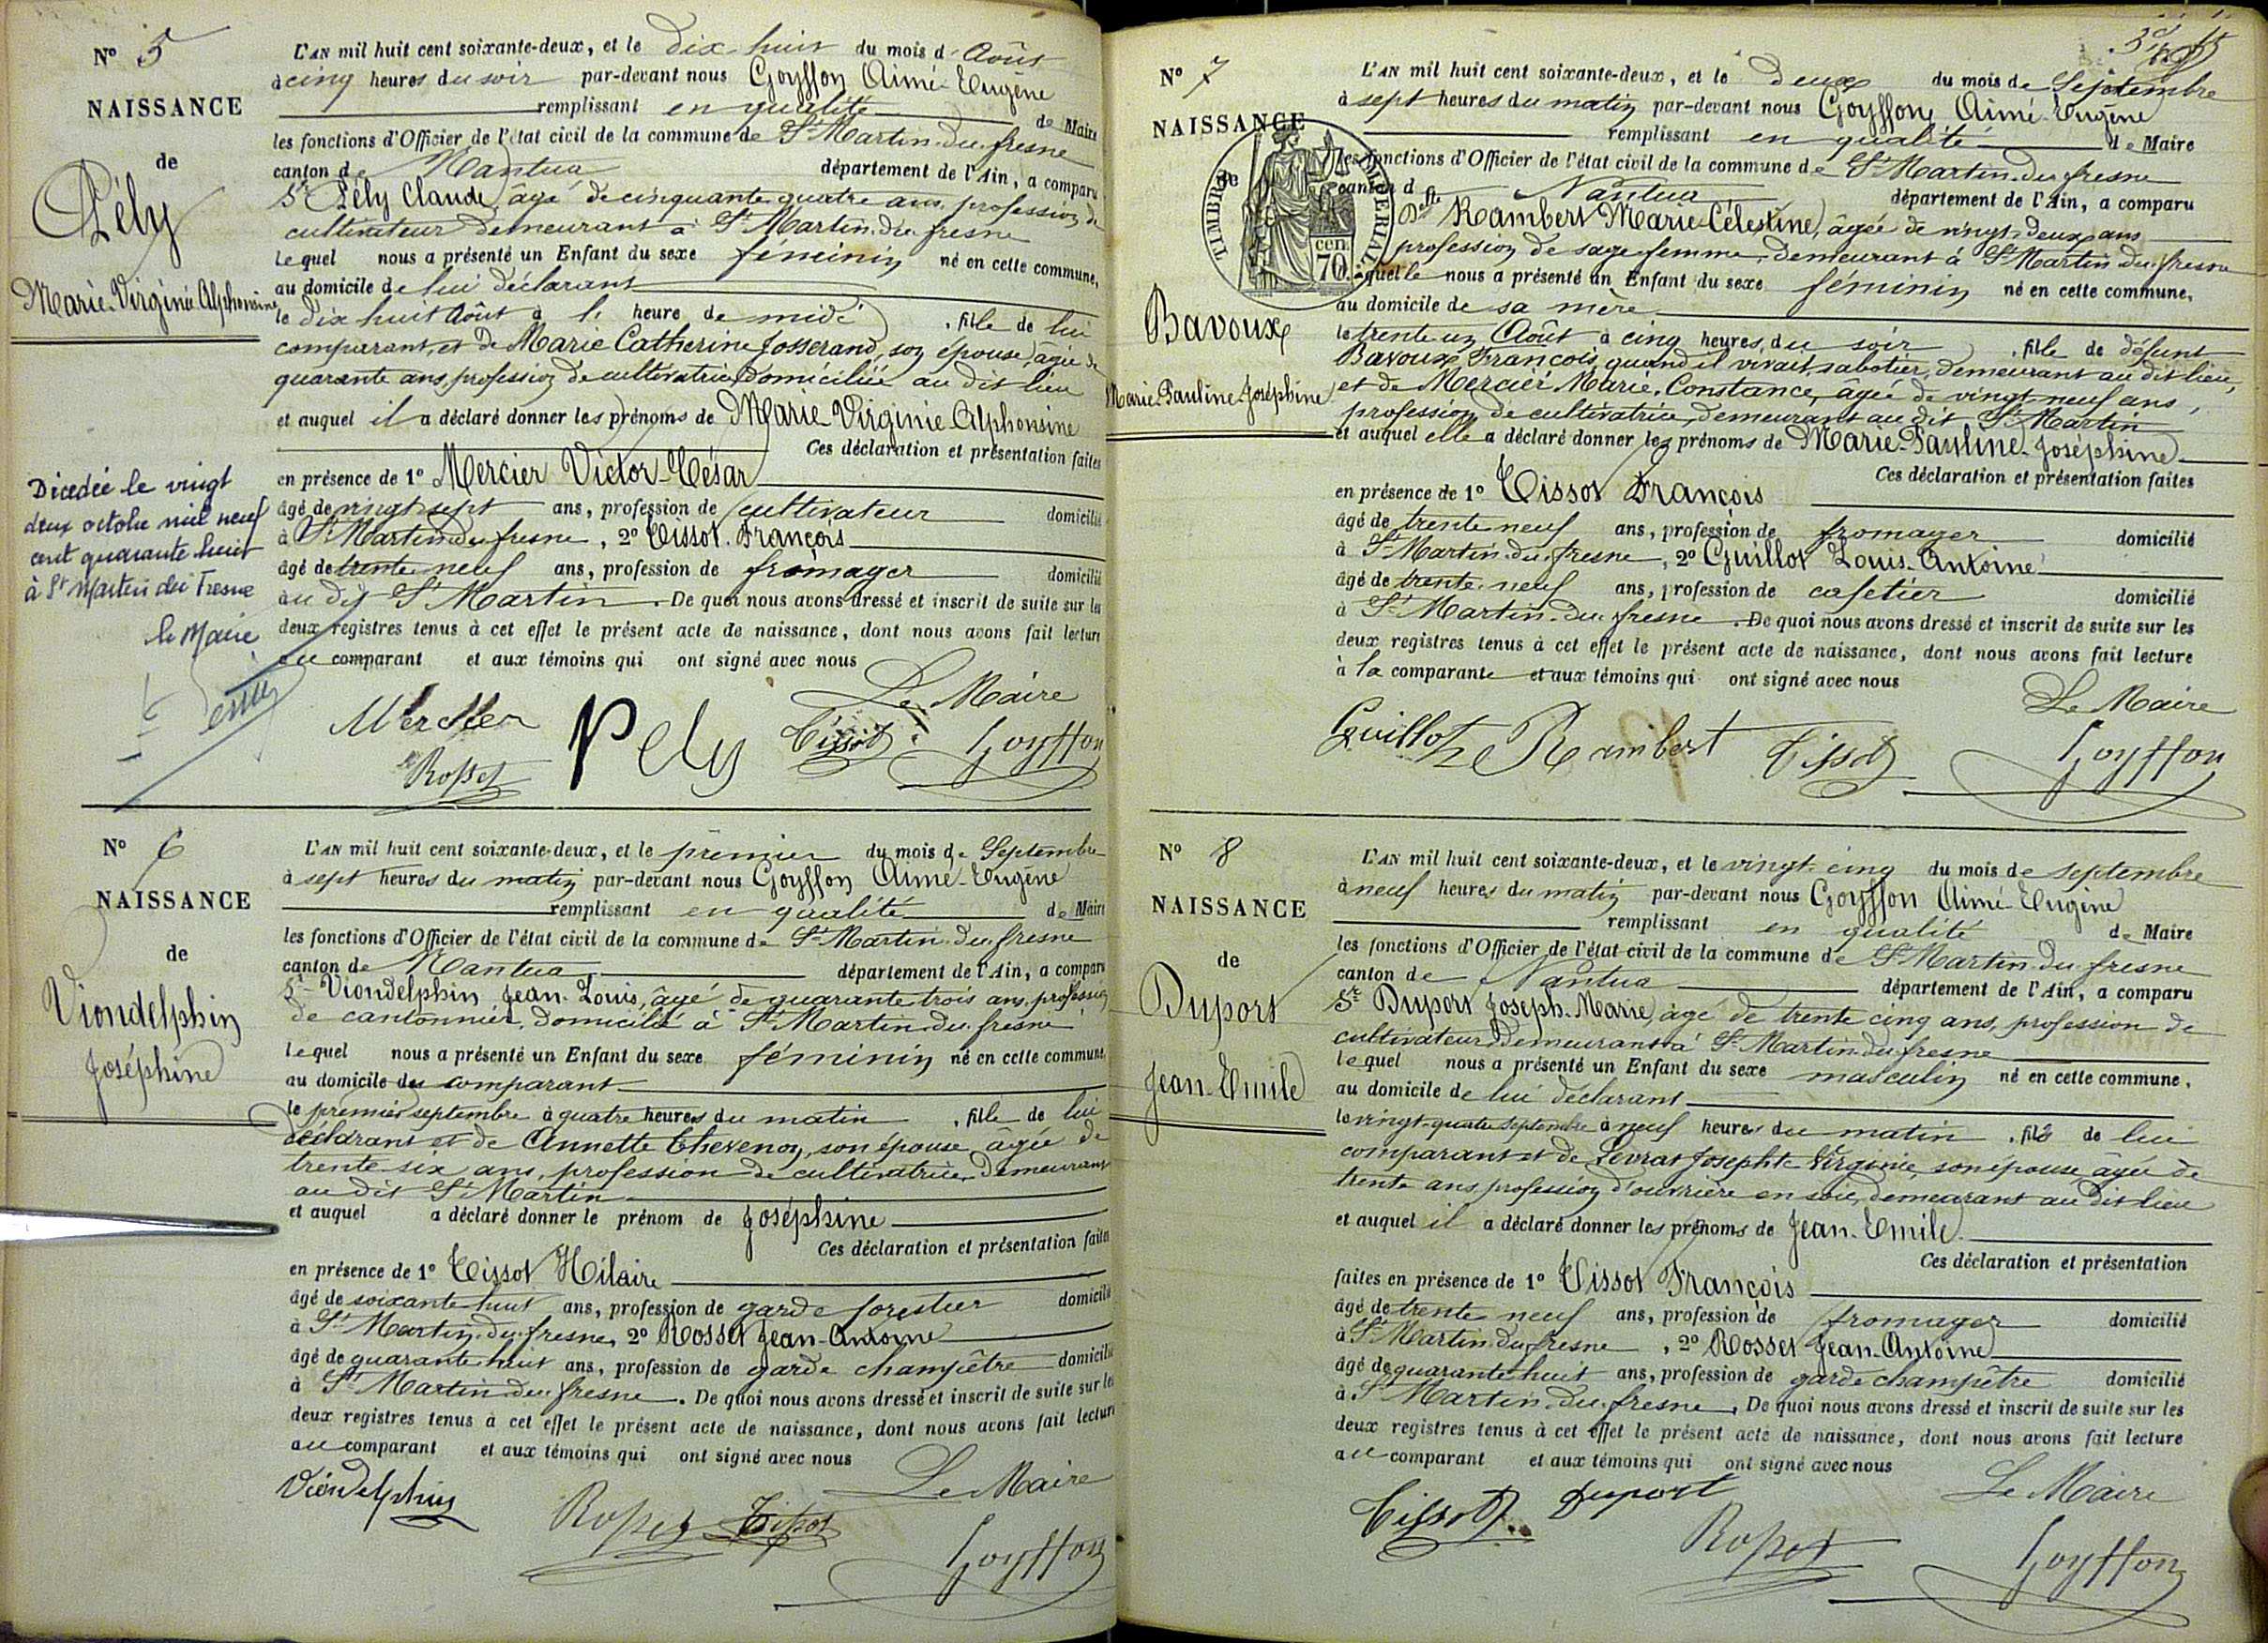 N° 5
NAISSANCE
de
Pély
Marie-Virginie Alphonsine
L'AN mil huit cent soixante-deux, et le dix huit du mois d'Août
à cinq heures du soir par-devant nous Goyffon Aimé-Eugène
remplissant en qualité de Maire
les fonctions d'Officier de l'état civil de la commune de St Martin-du-fresne
canton de Nantua département de l'Ain, a comparu
Sr Pély Claude, âgé de cinquante quatre ans, profession de
cultivateur demeurant à St Martin-du-fresne
Lequel nous a présenté un Enfant du sexe féminin né en cette commune,
au domicile de lui déclarant
le dix huit Août à l' heure de midi, fille de lui
comparant, et de Marie Catherine Josserand, son épouse, âgée de
quarante ans, profession de cultivatrice, domiciliée au dit lieu
et auquel il a déclaré donner les prénoms de Marie Virginie Alphonsine
Ces déclaration et présentation faites
en présence de 1° Mercier Victor-César
âgé de vingt sept ans, profession de cultivateur domicilié
à St Martin du fresne, 2° Tissot François
âgé de trente neuf ans, profession de fromager domicilié
au dit St Martin. De quoi nous avons dressé et inscrit de suite sur les
deux registres tenus à cet effet le présent acte de naissance, dont nous avons fait lecture
au comparant et aux témoins qui ont signé avec nous
Le Maire
Mercier Pely Tissot Goyffon
Rosset
Décédée le vingt
deux octobre mil neuf
cent quarante huit
à St Martin du Fresne
le Maire
N° 6
NAISSANCE
de
Viondelphin
Joséphine
L'AN mil huit cent soixante-deux, et le premier du mois de Septembre
à sept heures du matin par-devant nous Goyffon Aimé-Eugène
remplissant en qualité de Maire
les fonctions d'Officier de l'état civil de la commune de St Martin-du-fresne
canton de Nantua département de l'Ain, a comparu
Sr Viondelphin Jean-Louis, âgé de quarante trois ans, profession
de cantonnier, domicilié à St Martin-du-fresne
Lequel nous a présenté un Enfant du sexe féminin né en cette commune,
au domicile du comparant
le premier septembre à quatre heures du matin, fille de lui
déclarant et de Annette Thevenon, son épouse âgée de
trente six ans, profession de cultivatrice, demeurant
au dit St Martin
et auquel a déclaré donner le prénom de Joséphine
Ces déclaration et présentation faites
en présence de 1° Tissot Hilaire
âgé de soixante huit ans, profession de garde forestier domicilié
à St Martin-du-fresne, 2° Rosset Jean-Antoine
âgé de quarante huit ans, profession de garde champêtre domicilié
à St Martin-du-fresne. De quoi nous avons dressé et inscrit de suite sur les
deux registres tenus à cet effet le présent acte de naissance, dont nous avons fait lecture
au comparant et aux témoins qui ont signé avec nous
Le Maire
Viondelphin Rosset Tissot
Goyffon
N° 7
NAISSANCE
de
TIMBRE IMPERIAL
70 cen.
Bavoux
Marie-Pauline-Joséphine
L'AN mil huit cent soixante-deux, et le deux du mois de Septembre
à sept heures du matin par-devant nous Goyffon Aimé-Eugène
remplissant en qualité de Maire
les fonctions d'Officier de l'état civil de la commune de St Martin-du-fresne
canton d Nantua département de l'Ain, a comparu
Delle Rambert Marie-Célestine, âgée de vingt-deux ans
profession de sage femme, demeurant à St Martin du fresne
Laquelle nous a présenté un Enfant du sexe féminin né en cette commune,
au domicile de sa mère
le trente un Août à cinq heures du soir, fille de défunt
Bavoux François, quand il vivait, sabotier, demeurant au dit lieu,
et de Mercier Marie-Constance, âgée de vingt neuf ans,
profession de cultivatrice, demeurant au dit St Martin
et auquel elle a déclaré donner les prénoms de Marie-Pauline-Joséphine
Ces déclaration et présentation faites
en présence de 1° Tissot François
âgé de trente neuf ans, profession de fromager domicilié
à St Martin-du-fresne, 2° Guillot Louis-Antoine
âgé de trente-neuf ans, profession de cafetier domicilié
à St Martin-du-fresne. De quoi nous avons dressé et inscrit de suite sur les
deux registres tenus à cet effet le présent acte de naissance, dont nous avons fait lecture
à la comparante et aux témoins qui ont signé avec nous
Le Maire
Guillot Rambert Tissot Goyffon
N° 8
NAISSANCE
de
Duport
Jean-Emile
L'AN mil huit cent soixante-deux, et le vingt-cinq du mois de septembre
à neuf heures du matin par-devant nous Goyffon Aimé-Eugène
remplissant en qualité de Maire
les fonctions d'Officier de l'état civil de la commune de St Martin-du-fresne
canton de Nantua département de l'Ain, a comparu
Sr Duport Joseph-Marie, âgé de trente cinq ans, profession de
cultivateur, demeurant à St Martin-du-fresne
lequel nous a présenté un Enfant du sexe masculin né en cette commune,
au domicile de lui déclarant
le vingt-quatre septembre à neuf heures du matin, fils de lui
comparant et de Levrat Josephte Virginie, son épouse, âgée de
trente ans, profession d'ouvrière en soie, demeurant au dit lieu
et auquel il a déclaré donner les prénoms de Jean-Emile
Ces déclaration et présentation
faites en présence de 1° Tissot François
âgé de trente neuf ans, profession de fromager domicilié
à St Martin-du-fresne, 2° Rosset Jean-Antoine
âgé de quarante huit ans, profession de garde champêtre domicilié
à St Martin-du-fresne. De quoi nous avons dressé et inscrit de suite sur les
deux registres tenus à cet effet le présent acte de naissance, dont nous avons fait lecture
au comparant et aux témoins qui ont signé avec nous
Le Maire
Tissot Duport Rosset Goyffon